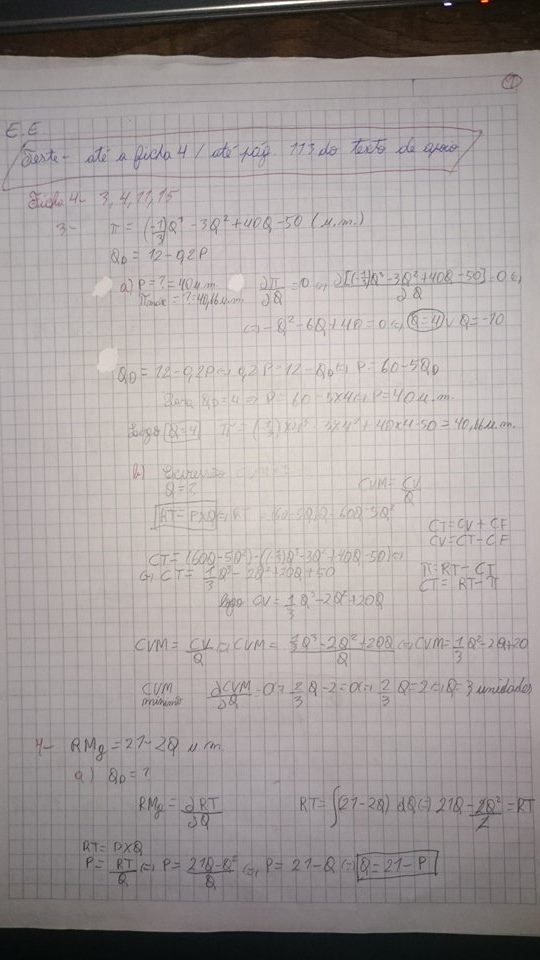 1
E.E
Teste - até a ficha 4 / até pág. 113 do texto de apoio
Ficha 4 - 3, 4, 11, 15
3- π = (-1/3)Q³ - 3Q² + 40Q - 50 (u.m.)
Q_D = 12 - 0,2P
a) P = ? = 40 u.m.   ∂π/∂Q = 0 ⇔ ∂[(-1/3)Q³ - 3Q² + 40Q - 50]/∂Q = 0 ⇔
π max = ? = 40,16 u.m.
⇔ - Q² - 6Q + 40 = 0 ⇔ Q = 4 ∨ Q = -10
Q_D = 12 - 0,2P ⇔ 0,2P = 12 - Q_D ⇔ P = 60 - 5Q_D
Para Q_D = 4 ⇒ P = 60 - 5x4 ⇔ P = 40 u.m.
Logo Q = 4   π = 3x4² + 40x4 - 50 = 40,16 u.m.
b)
Q = ?   CVM = CV/Q
RT = PxQ ⇔ = (60-5Q)Q = 60Q - 5Q²
CT = CV + CF
CV = CT - CF
CT = (60Q - 5Q²) - ((-1/3)Q³ - 3Q² + 40Q - 50) ⇔   π = RT - CT
⇔ CT = 1/3 Q³ - 2Q² + 20Q + 50   CT = RT - π
logo CV = 1/3 Q³ - 2Q² + 20Q
CVM = CV/Q ⇔ CVM = (1/3 Q³ - 2Q² + 20Q)/Q ⇔ CVM = 1/3 Q² - 2Q + 20
CVM mínimo   ∂CVM/∂Q = 0 ⇔ 2/3 Q - 2 = 0 ⇔ 2/3 Q = 2 ⇔ Q = 3 unidades
4- RMg = 21 - 2Q u.m.
a) Q_D = ?
RMg = ∂RT/∂Q   RT = ∫(21 - 2Q) dQ ⇔ 21Q - 2Q²/2 = RT
RT = PxQ
P = RT/Q ⇔ P = (21Q - Q²)/Q ⇔ P = 21 - Q ⇔ Q = 21 - P